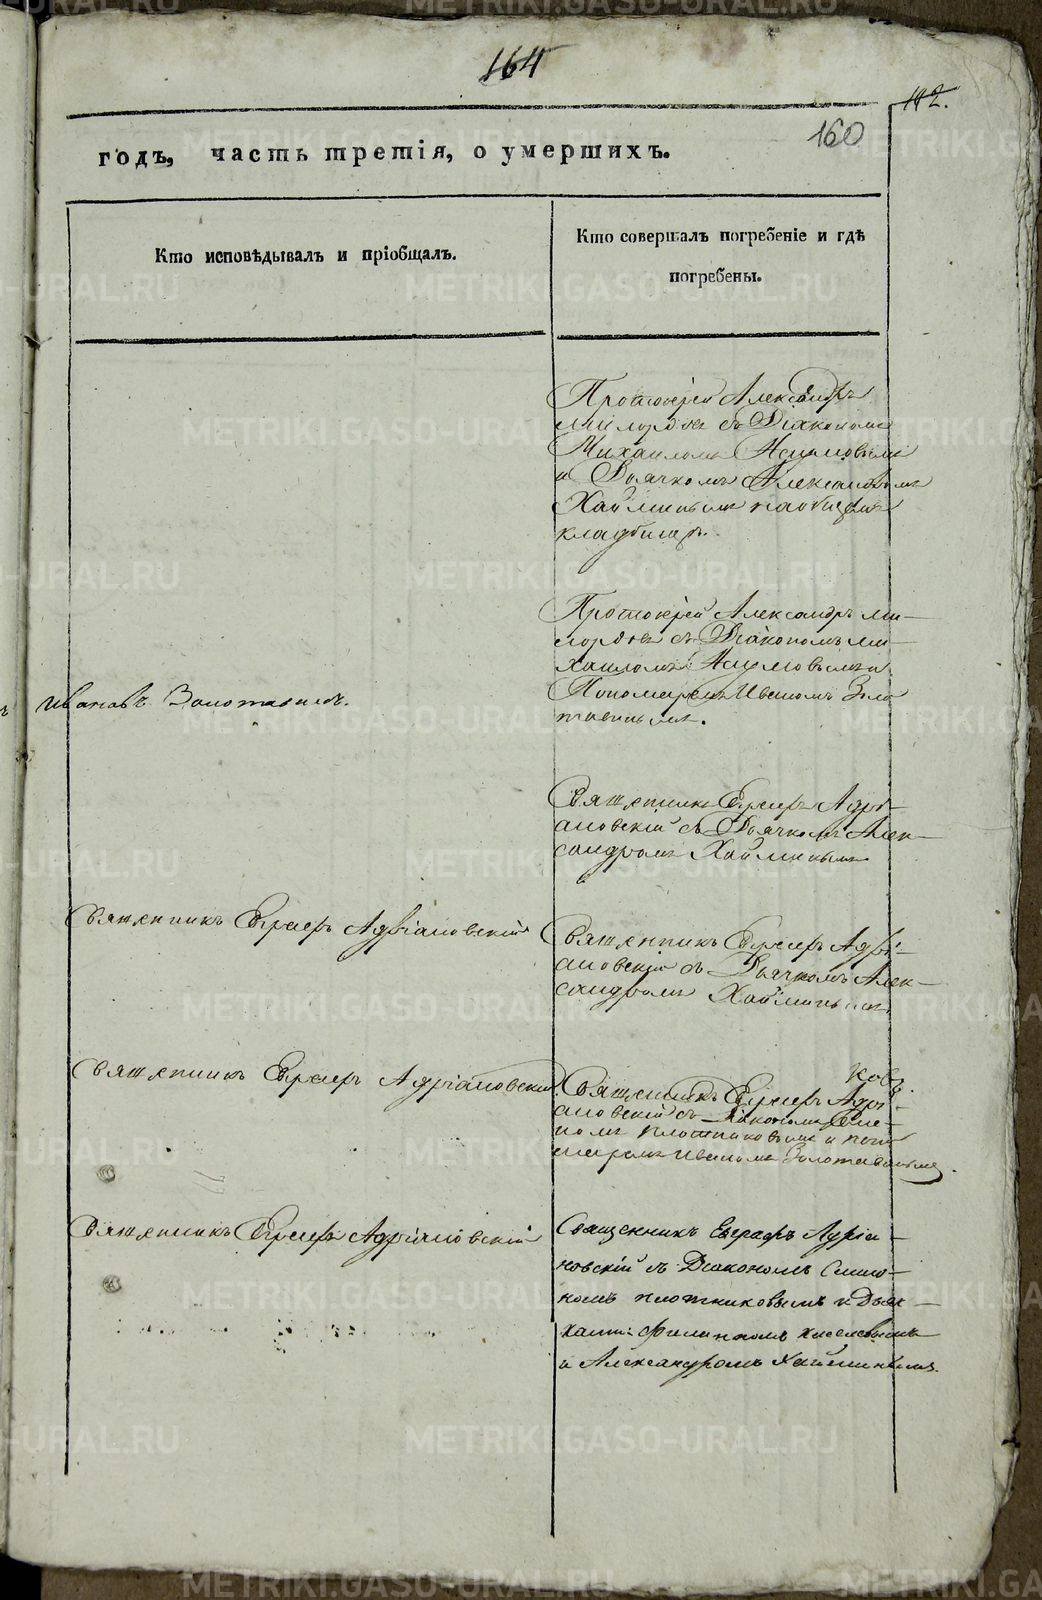 164
112.
160
годъ, часть третія, о умершихъ.
Кто исповѣдывалъ и пріобщалъ.
Кто совершалъ погребеніе и гдѣ
погребены.
Протоіерей Александръ
Милордовъ съ Діакономъ
Михаиломъ Наумовымъ
и Дьячкомъ Александромъ
Хайминымъ на общемъ
кладбищѣ.
Протоіерей Александръ Ми-
лордовъ съ Діакономъ Ми-
хаиломъ Наумовымъ и
Пономаремъ Иваномъ Золо
тавинымъ.
Иванъ Золотавинъ.
Священникъ Евграфъ Адрі-
ановскій съ Дьячкомъ Алек-
сандромъ Хайминымъ
Священникъ Евграфъ Адріановскій
Священникъ Евграфъ Адрі-
ановскій съ Дьячкомъ Алек-
сандромъ Хайминымъ
Священникъ Евграфъ Адріановскій
Священникъ Евграфъ Адрі-
ановскій съ Діакономъ Симо-
номъ Плотниковымъ и поно
маремъ Иваномъ Золотавинымъ.
Священникъ Евграфъ Адріановскій
Священникъ Евграфъ Адріа-
новскій съ Діакономъ Симо-
номъ Плотниковымъ и Дьяч-
ками: Филиппомъ Киселевымъ
и Александромъ Хайминымъ.
METRIKI.GASO-URAL.RU